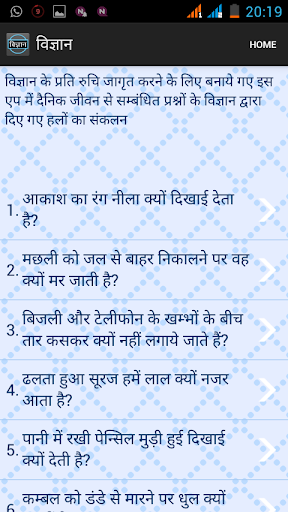 20:19
विज्ञान
विज्ञान
HOME
विज्ञान के प्रति रुचि जागृत करने के लिए बनाये गए इस
एप में दैनिक जीवन से सम्बंधित प्रश्नों के विज्ञान द्वारा
दिए गए हलों का संकलन
1. आकाश का रंग नीला क्यों दिखाई देता
है?
2. मछली को जल से बाहर निकालने पर वह
क्यों मर जाती है?
3. बिजली और टेलीफोन के खम्भों के बीच
तार कसकर क्यों नहीं लगाये जाते हैं?
4. ढलता हुआ सूरज हमें लाल क्यों नजर
आता है?
5. पानी में रखी पेन्सिल मुड़ी हुई दिखाई
क्यों देती है?
6. कम्बल को डंडे से मारने पर धुल क्यों